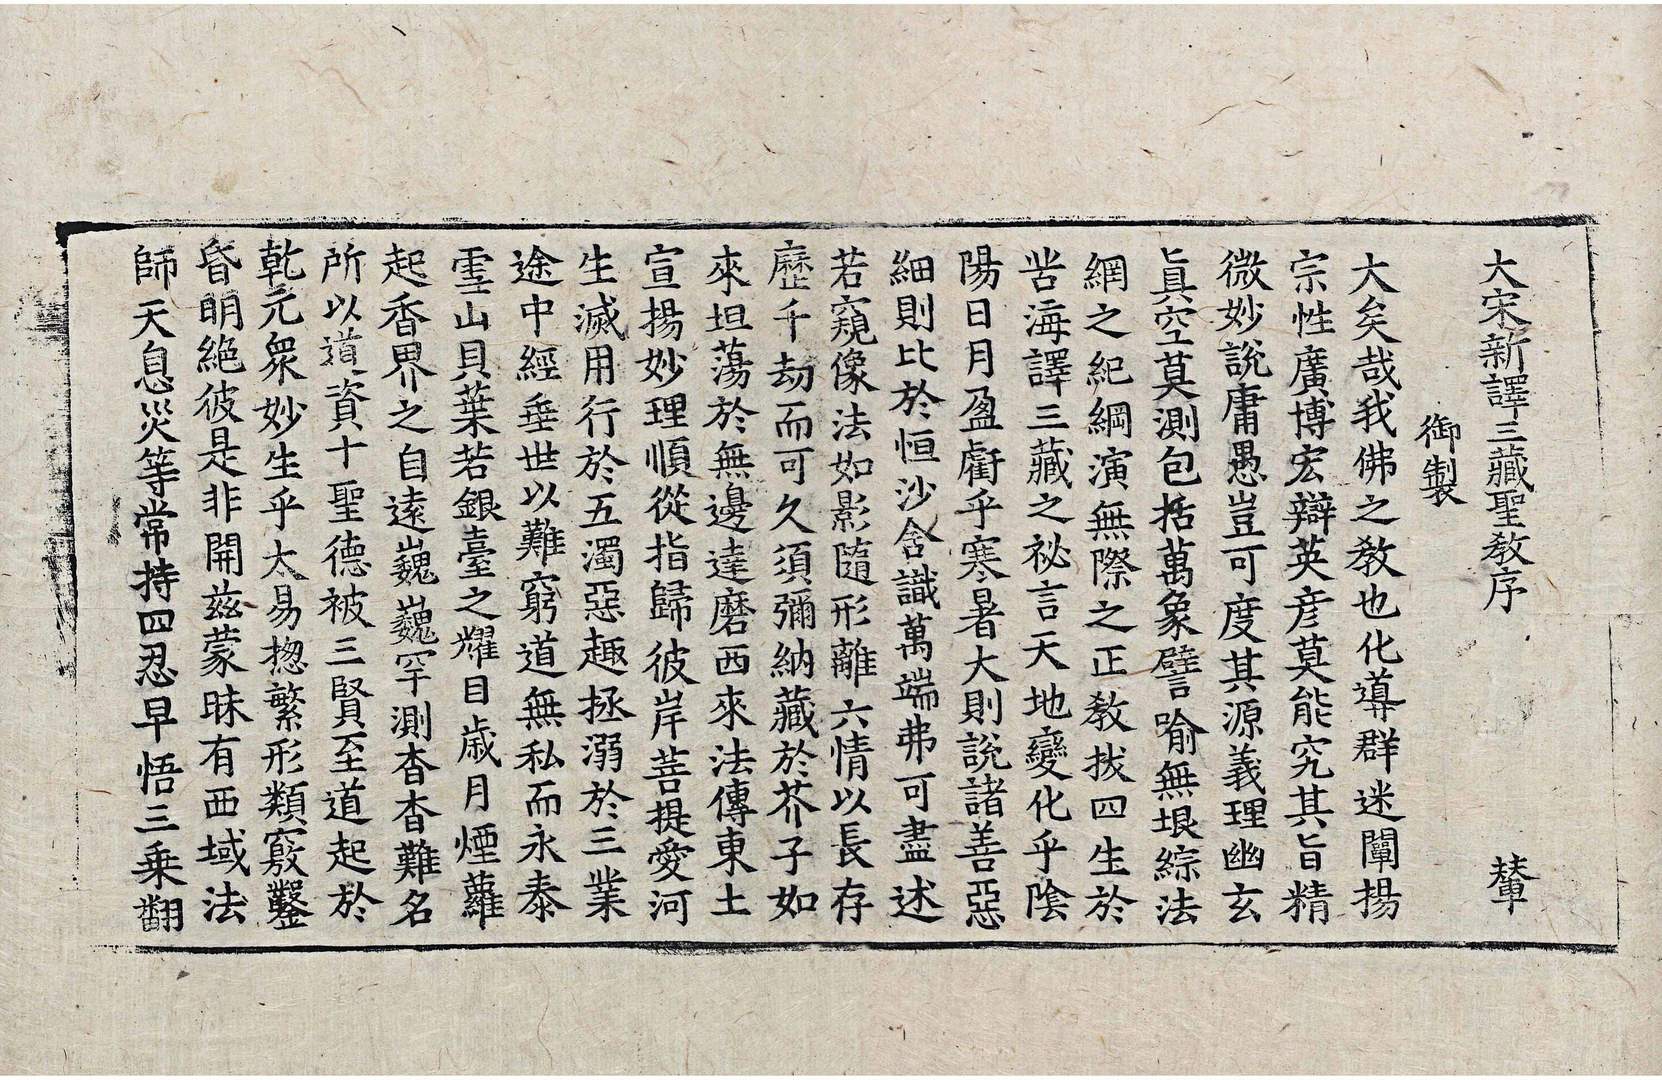 大宋新譯三藏聖敎序 輦
御製
大矣哉我佛之敎也化導群迷闡揚
宗性廣博宏辯英彦莫能究其旨精
微妙說庸愚豈可度其源義理幽玄
眞空莫測包括萬象譬喻無垠綜法
網之紀綱演無際之正敎拔四生於
苦海譯三藏之祕言天地變化乎陰
陽日月盈虧乎寒暑大則說諸善惡
細則比於恒沙含識萬端弗可盡述
若窺像法如影隨形離六情以長存
歷千劫而可久須彌納藏於芥子如
來坦蕩於無邊達磨西來法傳東土
宣揚妙理順從指歸彼岸菩提愛河
生滅用行於五濁惡趣拯溺於三業
途中經垂世以難窮道無私而永泰
雪山貝葉若銀臺之耀目歲月煙蘿
起香界之自遠巍巍罕測杳杳難名
所以道資十聖德被三賢至道起於
乾元衆妙生乎太易揔繁形類竅鑿
昏明絶彼是非開兹蒙昧有西域法
師天息災等常持四忍早悟三乘翻